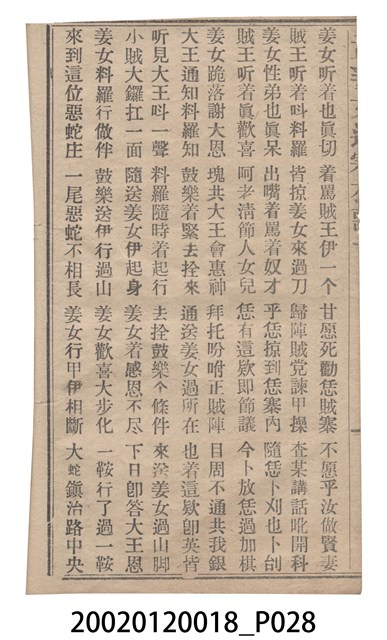 姜女听着也眞切 着罵賊王伊一个 甘愿死勸恁賊寨 不愿乎汝做賢妻
賊王听着呌料羅 皆掠姜女來過刀 歸陣賊党諫甲操 査某講話吪開科
姜女性弟也眞呆 出嘴着罵着奴才 乎恁掠到恁寨內 隨恁卜刈也卜刣
賊王听着眞歡喜 呵老淸節人女兒 恁有這欵即節議 今卜放恁過加棋
姜女跪落謝大恩 瑰共大王會惠神 拜托吩咐正賊陣 目周不通共我銀
大王通知料羅知 鼓樂着緊去拴來 通送姜女過所在 也着這欵卽英皆
听見大王呌一聲 料羅隨時着起行 去拴鼓樂个條件 來送姜女過山脚
小賊大鑼扛一面 隨送姜女伊起身 姜女着感恩不尽 下日卽答大王恩
姜女料羅行做伴 鼓樂送伊行過山 姜女歡喜大步化 一鞍行了過一鞍
來到這位惡蛇庄 一尾惡蛇不相長 姜女行甲伊相斷 大蛇鎭治路中央
20020120018_P028